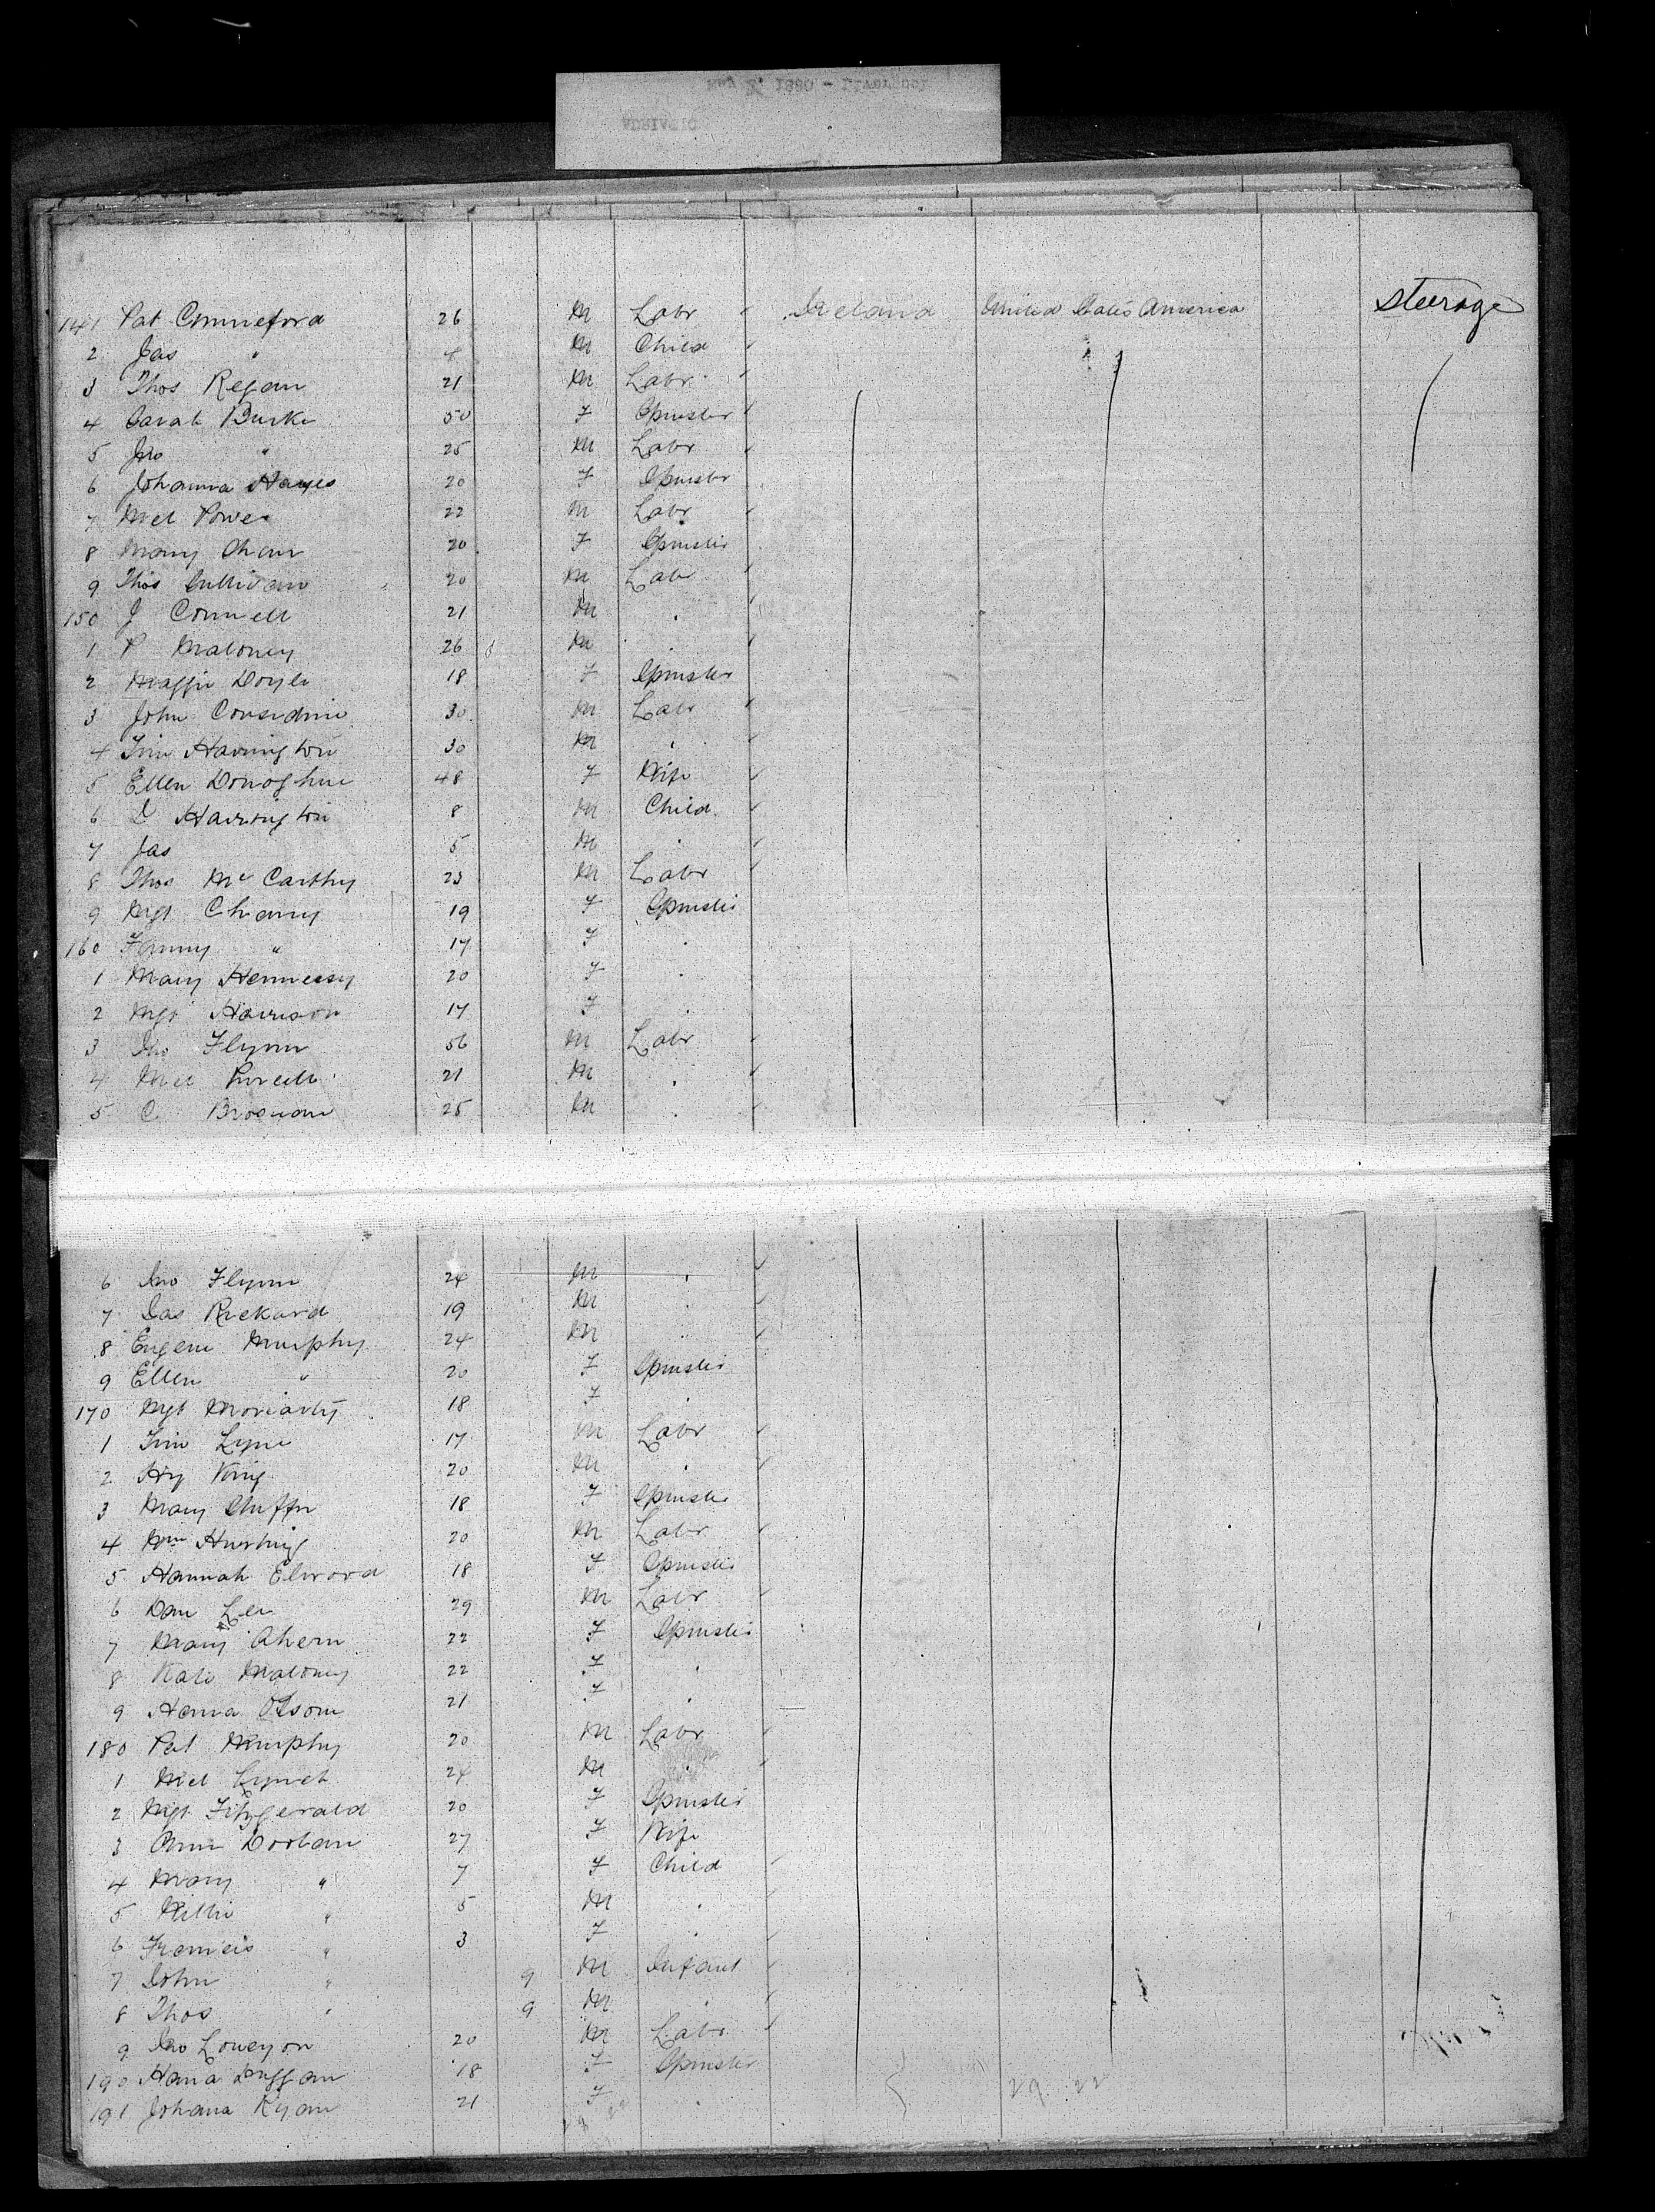 May 1880 - Liverpool
ADRIATIC
141 Pat Comneford 26 M Labr Ireland United States America Steerage
2 Jas " 4 M Child
3 Thos Regan 21 M Labr
4 Sarah Burke 50 F Spinster
5 Jno " 25 M Labr
6 Johanna Hayes 20 F Spinster
7 Mcl Power 22 M Labr
8 Mary Shea 20 F Spinster
9 Thos Sullivan 20 M Labr
150 J Connell 21 M .
1 P Maloney 26 M .
2 Maggie Doyle 18 F Spinster
3 John Considine 30 M Labr
4 Tim Harrington 30 M .
5 Ellen Donoghue 48 F Wife
6 D Harrington 8 M Child
7 Jas 5 M .
8 Thos McCarthy 23 M Labr
9 Mgt 19 F Spinster
160 Fanny " 17 F .
1 Mary Hennessy 20 F .
2 Mgt Harrison 17 F .
3 Jno Flynn 56 M Labr
4 Mcl Purcell 21 M .
5 C Brosnan 25 M .
6 Jno Flynn 24 M .
7 Jas Rickard 19 M .
8 Eugene Murphy 24 M .
9 Ellen " 20 F Spinster
170 Mgt Moriarty 18 F .
1 Tim Lyne 17 M Labr
2 Hy King 20 M .
3 Mary 18 F Spinster
4 Wm 20 M Labr
5 Hannah Elwood 18 F Spinster
6 Dan Lee 29 M Labr
7 Mary Ahern 22 F Spinster
8 Kate Maloney 22 F .
9 Hana 21 F .
180 Pat Murphy 20 M Labr
1 Mcl Lynch 24 M .
2 Mgt Fitzgerald 20 F Spinster
3 Ann Doolan 27 F Wife
4 Mary " 7 F Child
5 Willie " 5 M .
6 Francis " 3 F .
7 John " 9 M Infant
8 Thos " 9 M .
9 Jno 20 M Labr
190 Hana Duggan 18 F Spinster
191 Johana Ryan 21 F .